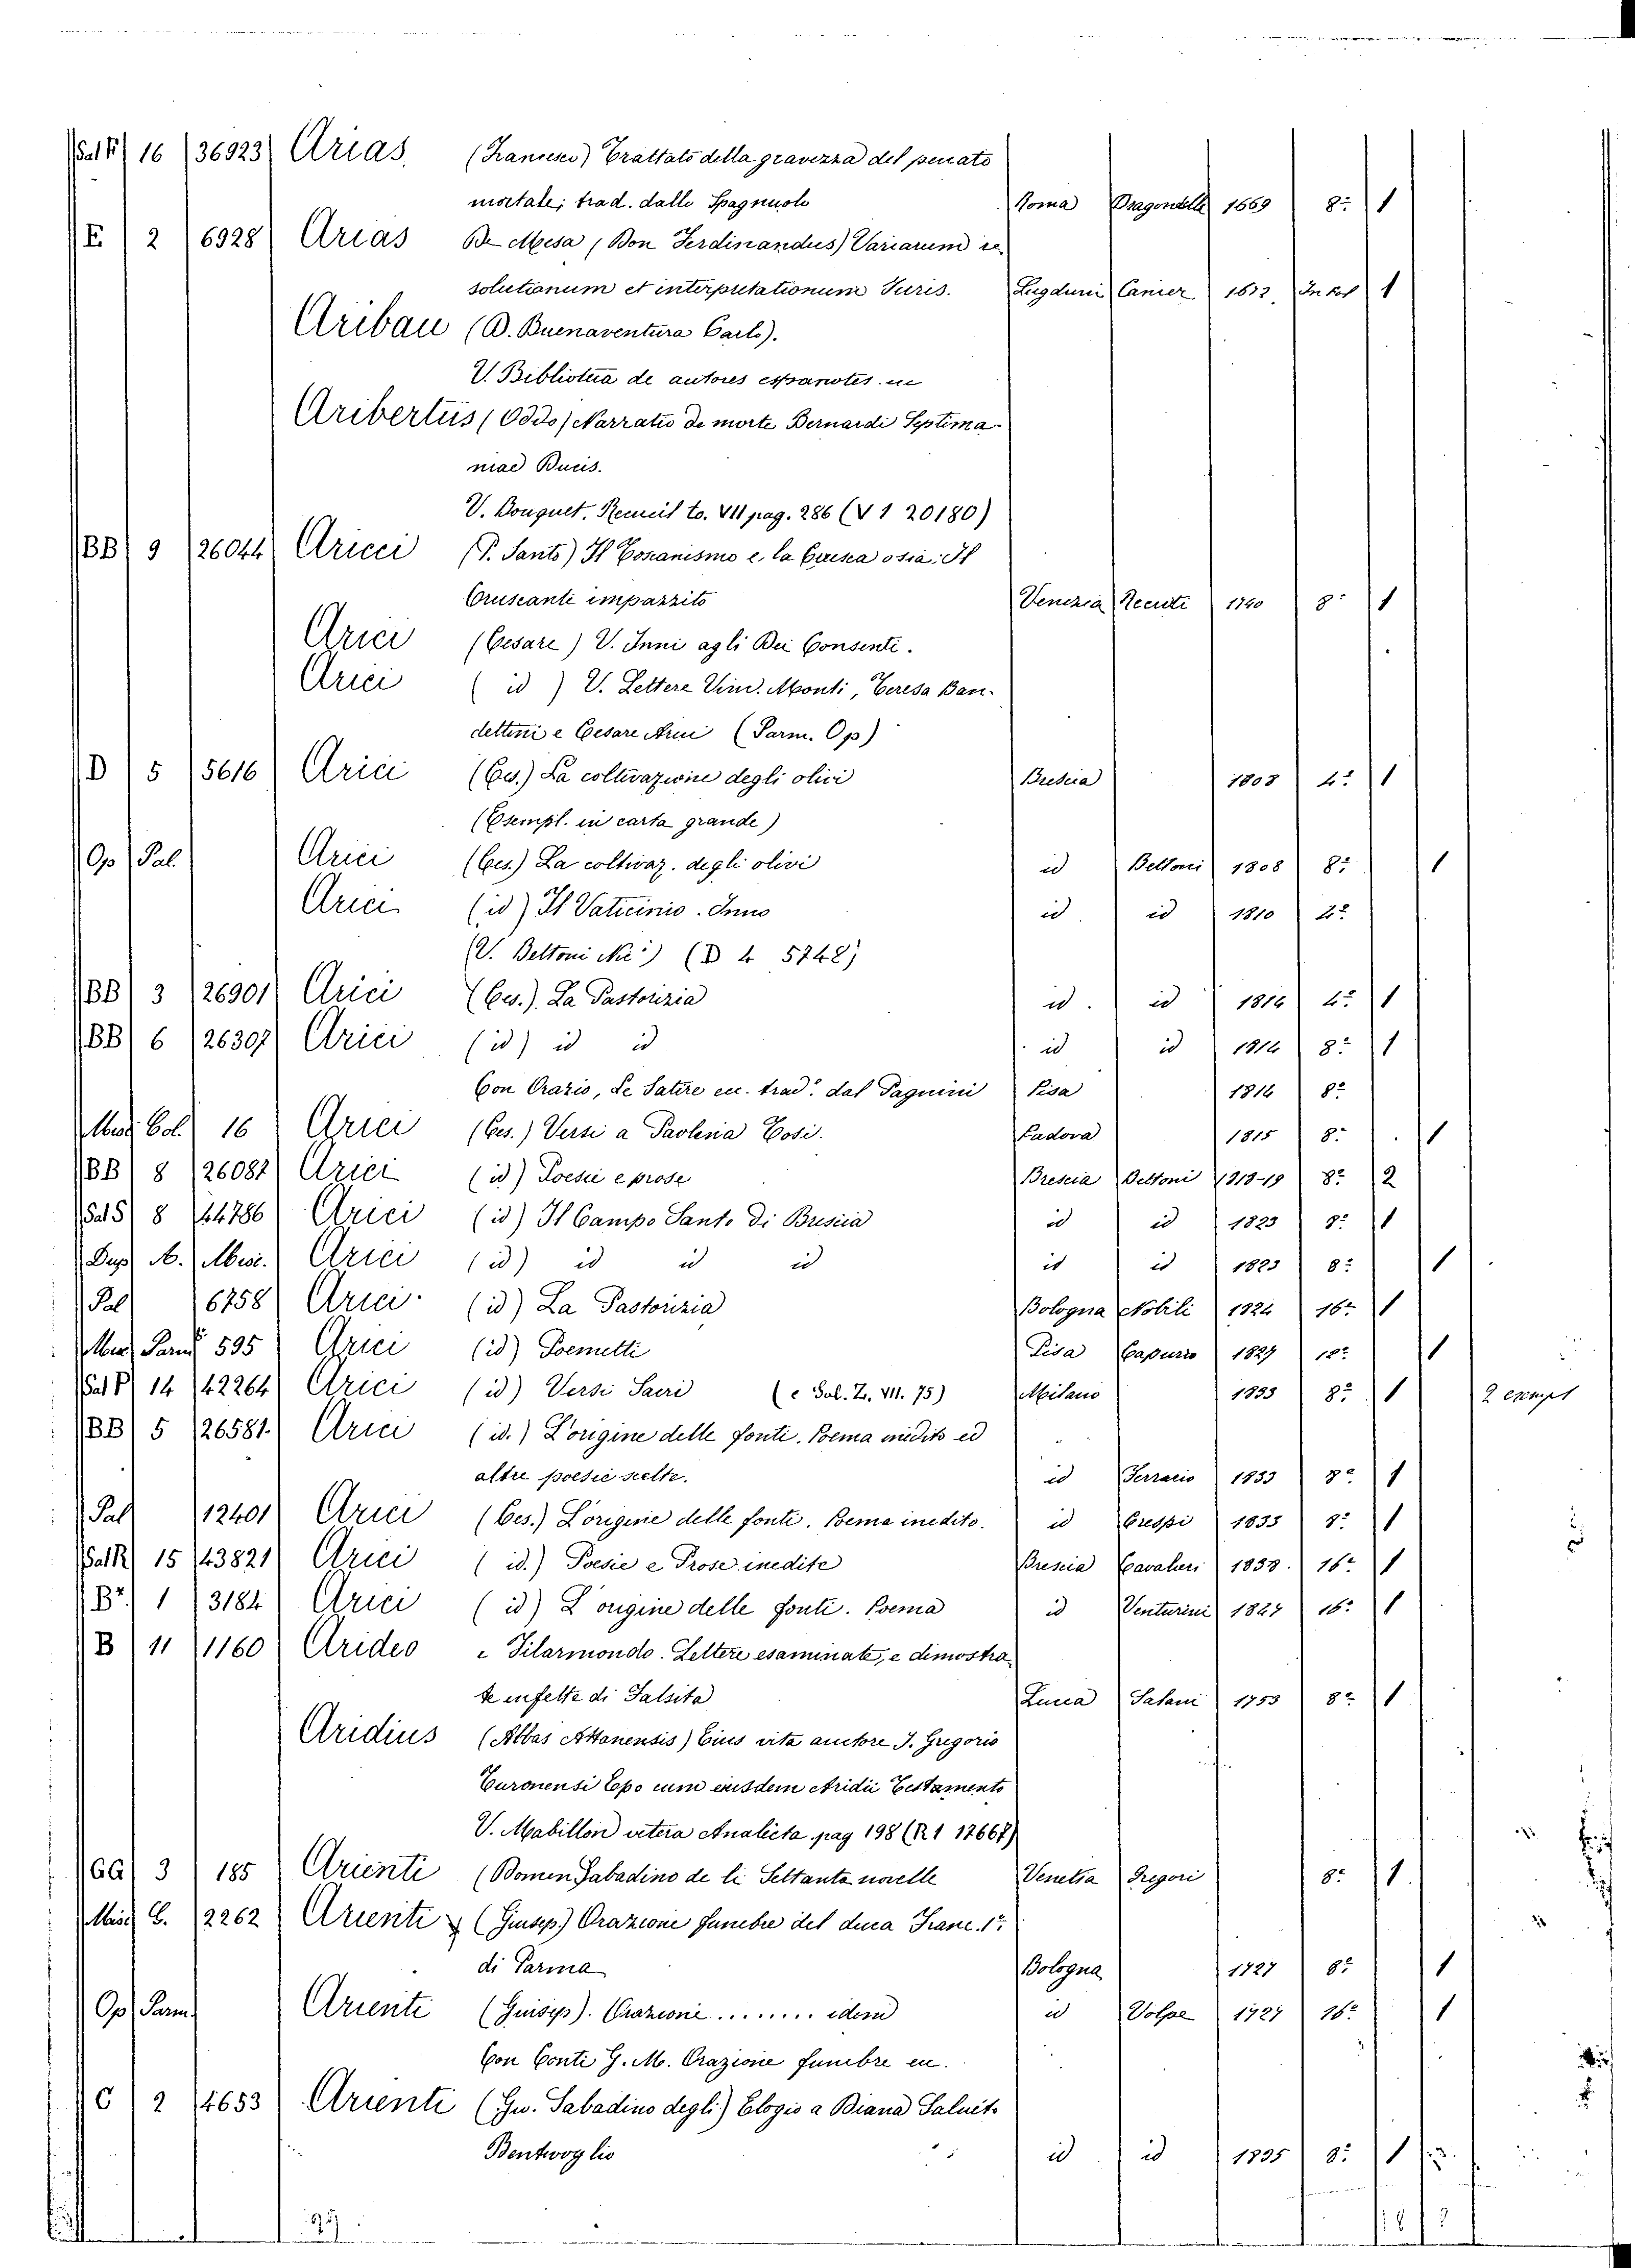 Sal F 16 36923 Arias (Francesco) Trattato della gravezza del peccato
mortale; trad. dallo Spagnuolo Roma Dragondelli 1669 8º 1
E 2 6928 Arias De Mesa (Don Ferdinandus) Variarum re
solutionum et interpretationum Juris. Lugduni Canier In fol 1
Aribau (D. Buenaventura Carlo).
V. Biblioteca de autores españoles.
Aribertus (Oddo) Narratio de morte Bernardi Septima
niae Ducis.
V. Bouquet, Recueil to. VII pag. 286 (V 1 20180)
BB 9 26044 Aricci (P. Santo) Il Toscanismo e la Crusca o sia: Il
Cruscante impazzito Venezia Recurti 1740 8º 1
Arici (Cesare) V. Inni agli Dei Consenti.
Arici (id) V. Lettere Vinc. Monti, Teresa Ban-
dettini e Cesare Arici (Parm. Op)
D 5 5616 Arici (Ces.) La coltivazione degli olivi Brescia 1808 4º 1
(Esempl. in carta grande)
Op Pal. Arici (Ces.) La coltivaz. degli olivi id Bettoni 1808 8º 1
Arici (id) Il Vaticinio. Inno id id 1810 2º
(V. Bettoni Nic.) (D 4 5742)
BB 3 26901 Arici (Ces.) La Pastorizia id. id 1814 4º 1
BB 6 26307 Arici (id) id id id id 1814 8º 1
Con Orazio, Le Satire ec. trad. dal Pagnini Pisa 1814 8º
Misc. Col. 16 Arici (Ces.) Versi a Paolina Tosi. Padova 1815 8º 1
BB 8 26087 Arici (id) Poesie e prose Brescia Bettoni 1818-19 8º 2
Sal S 8 44786 Arici (id) Il Campo Santo di Brescia id id 1823 8º 1
Dup N. Misc. Arici (id) id id id id id 1823 8º 1
Pal 6758 Arici (id) La Pastorizia Bologna Nobili 1824 16º 1
Misc. Parm 595 Arici (id) Poemetti Pisa Capurro 1829 1
Sal P 14 42264 Arici (id) Versi Sacri (e Sal. Z. VII. 75) Milano 8º 1 2 exempl
BB 5 26581 Arici (id.) L'origine delle fonti. Poema inedito ed
altre poesie scelte. id Ferrario 1833 8º 1
Pal 12401 Arici (Ces.) L'origine delle fonti. Poema inedito. id Crespi 1835 8º 1
Sal R 15 43821 Arici (id.) Poesie e Prose inedite Brescia Cavalieri 1838. 16º 1
Br. 1 3184 Arici (id) L'origine delle fonti. Poema id Venturini 16º 1
B 11 1160 Arideo e Filarmondo. Lettere esaminate, e dimostra
te infette di Falsità Lucca Salani 1753 8º 1
Aridius (Abbas Attanensis) Eius vita auctore S. Gregorio
Turonensi Epo cum eiusdem Aridii Testamento
V. Mabillon vetera Analecta pag 198 (R 1 17667)
GG 3 185 Arienti (Domen Sabadino de li Settanta novelle Venetia Gregori 8º 1
Misc. E. 2262 Arienti (Giusep.) Orazione funebre del duca Franc. 1º
di Parma Bologna 1727 8º 1
Op Parm. Arienti (Guisep). Orazione ........ idem id Volpe 1727 16º 1
Con Conti G. M. Orazione funebre ec.
C 2 4653 Arienti (Gio. Sabadino degli) Elogio a Diana Saluit.
Bentivoglio id id 1835 8º 1